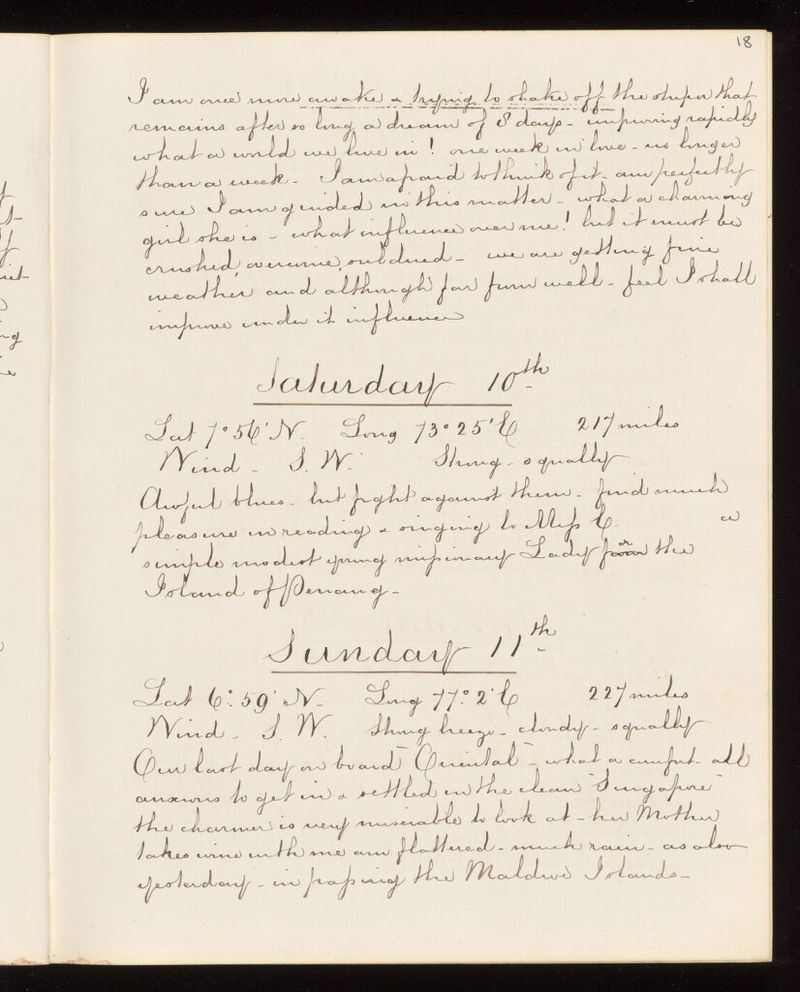 18
I am once more awake & trying to shake off the stupor that
remains after so long a dream of 8 days - improving rapidly
what a world we live in! one week in love - no longer
than a week - I am afraid to think of it - am perfectly
sure I am guided in this matter - what a charming
girl she is - what influence over me! but it must be
crushed, overcome, subdued - we are getting fine
weather and although far from well - feel I shall
improve under it influence
Saturday 10th
Lat 7° 56' N. Long 73° 25' E 217 miles
Wind - S. W. Strong - squally
Awful blues - but fight against them - find much
pleasure in reading & singing to Miss E. a
simple modest young missionary Lady for the
Island of Penang -
Sunday 11th
Lat 6° 59' N - Long 77° 2' E 227 miles
Wind - S. W. Strong breeze - cloudy - squally
Our last day on board "Oriental" - what a comfort - all
anxious to get in & settled in the clean "Singapore"
the charmer is very miserable to look at - her Mother
takes wine with me am flattered - much rain - as also
yesterday - in passing the Maldive Islands -